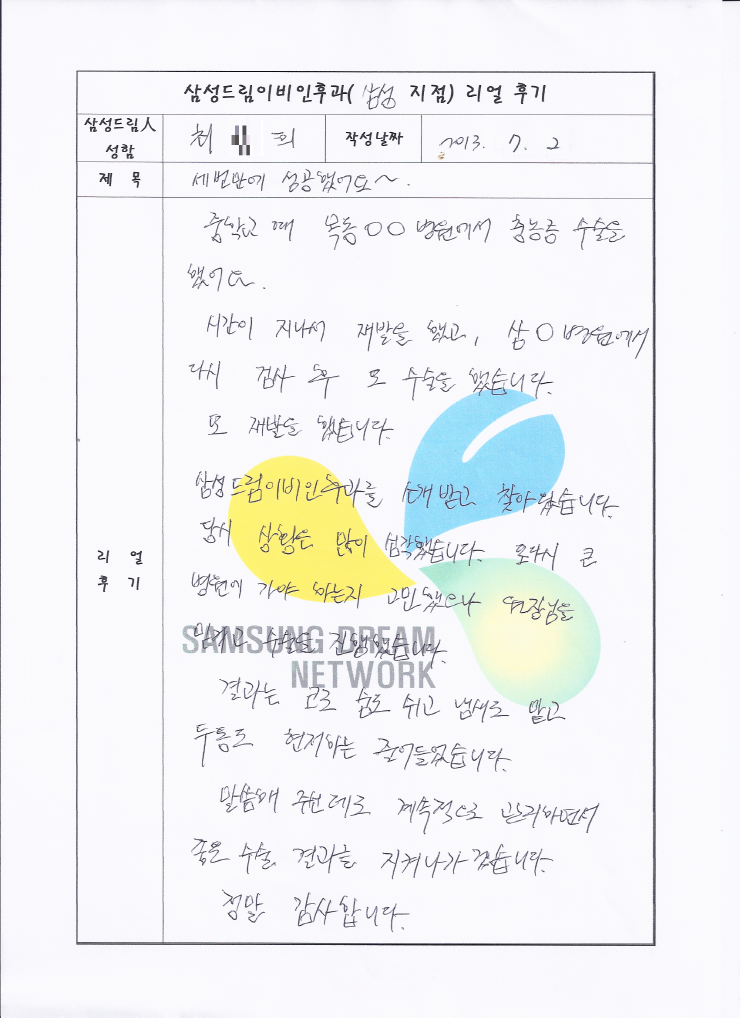 삼성드림이비인후과( 삼성 지점) 리얼 후기
삼성드림人 성함
최 희
작성날짜
2013. 7. 2
제 목
세번만에 성공했어요~.
리 얼 후 기
중학교 때 목동○○병원에서 축농증 수술을
했어요.
시간이 지나서 재발을 했고, 삼○병원에서
다시 검사 후 또 수술을 했습니다.
또 재발을 했습니다.
삼성드림이비인후과를 소개받고 찾아왔습니다.
당시 상황은 많이 심각했습니다. 또다시 큰
병원에 가야 하는지 고민했으나 원장님을
믿고 수술을 진행했습니다.
SAMSUNG DREAM
NETWORK
결과는 코로 숨도 쉬고 냄새도 맡고
두통도 현저하는 줄어들었습니다.
말씀해 주신데로 계속적으로 관리하면서
좋은 수술 결과를 지켜나가겠습니다.
정말 감사합니다.